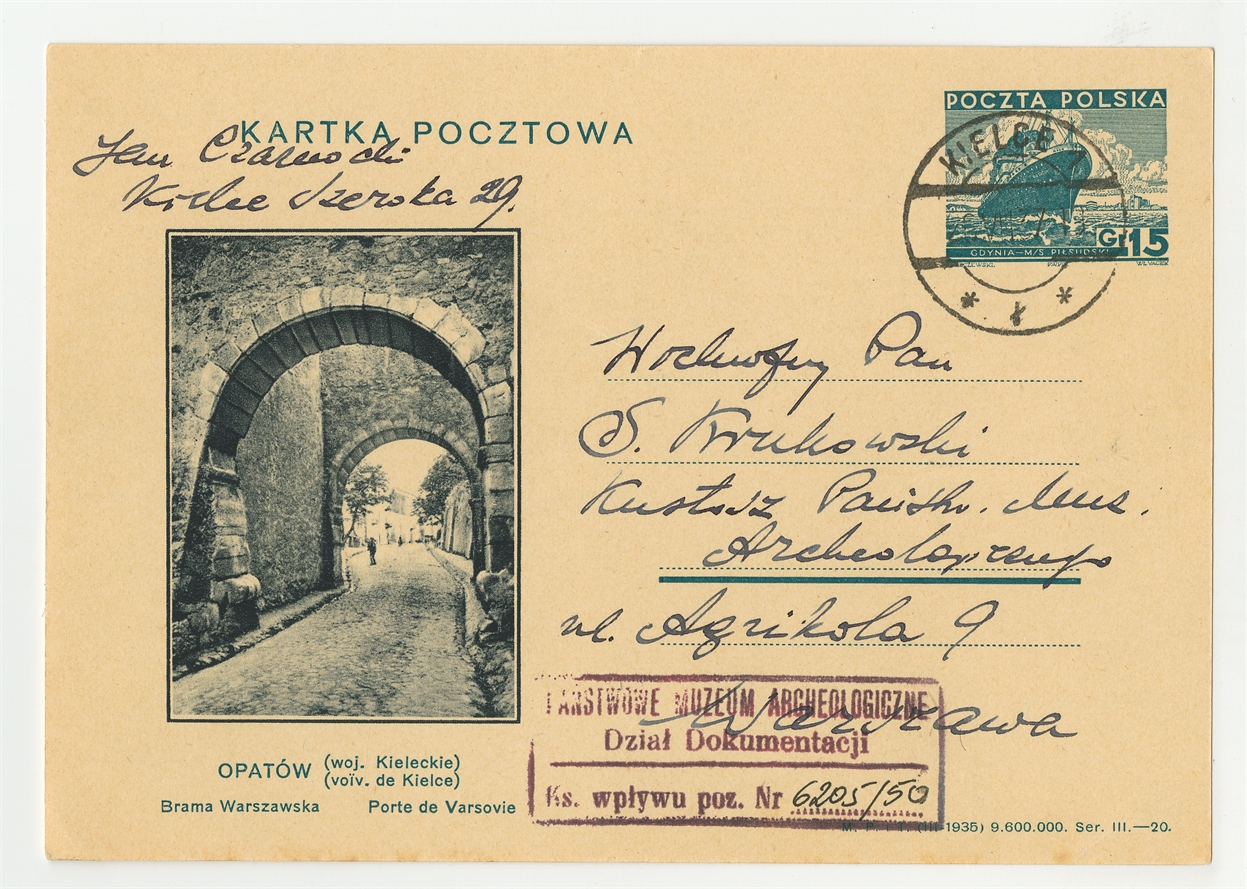 POCZTA POLSKA
KARTKA POCZTOWA
Jan Czarnocki
Kielce Szeroka 29.
KIELCE 1
Gr 15
GDYNIA—M/S PIŁSUDSKI
* ł *
Wielmożny Pan
S. Krukowski
Kustosz Państw. Muz.
Archeologicznego
ul. Agrikola 9
Warszawa
PAŃSTWOWE MUZEUM ARCHEOLOGICZNE
Dział Dokumentacji
Ks. wpływu poz. Nr 6205/50
OPATÓW (woj. Kieleckie)
(voïv. de Kielce)
Brama Warszawska Porte de Varsovie
M. P. i T. (III-1935) 9.600.000. Ser. III.—20.